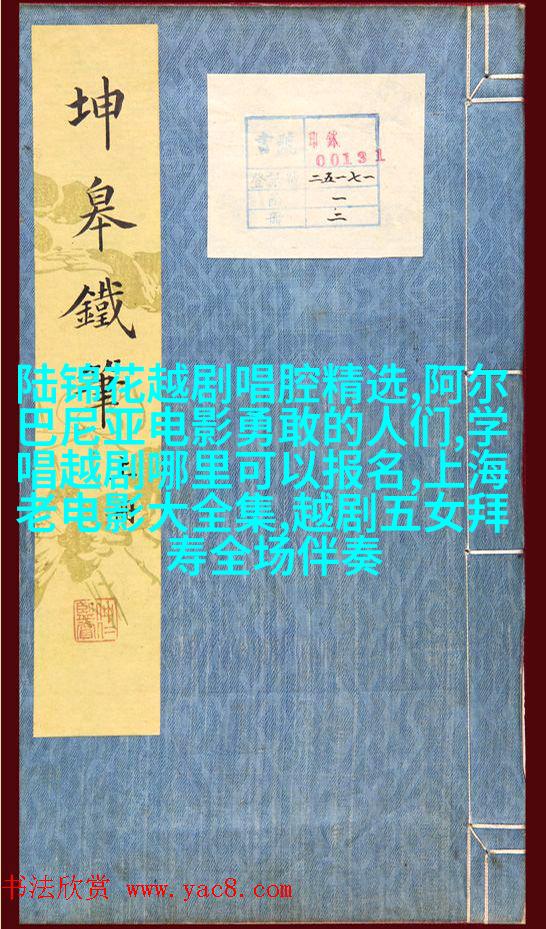 坤皋鐵筆
書號 印鉢
00131
二五一七一
一
二
陆锦花越剧唱腔精选,阿尔
巴尼亚电影勇敢的人们,学
唱越剧哪里可以报名,上海
老电影大全集,越剧五女拜
寿全场伴奏
书法欣赏 www.yac8.com